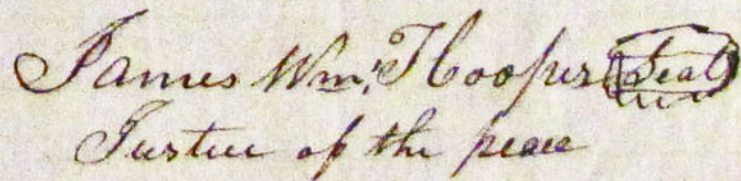 James Wm. Hooper Seal
Justice of the peace